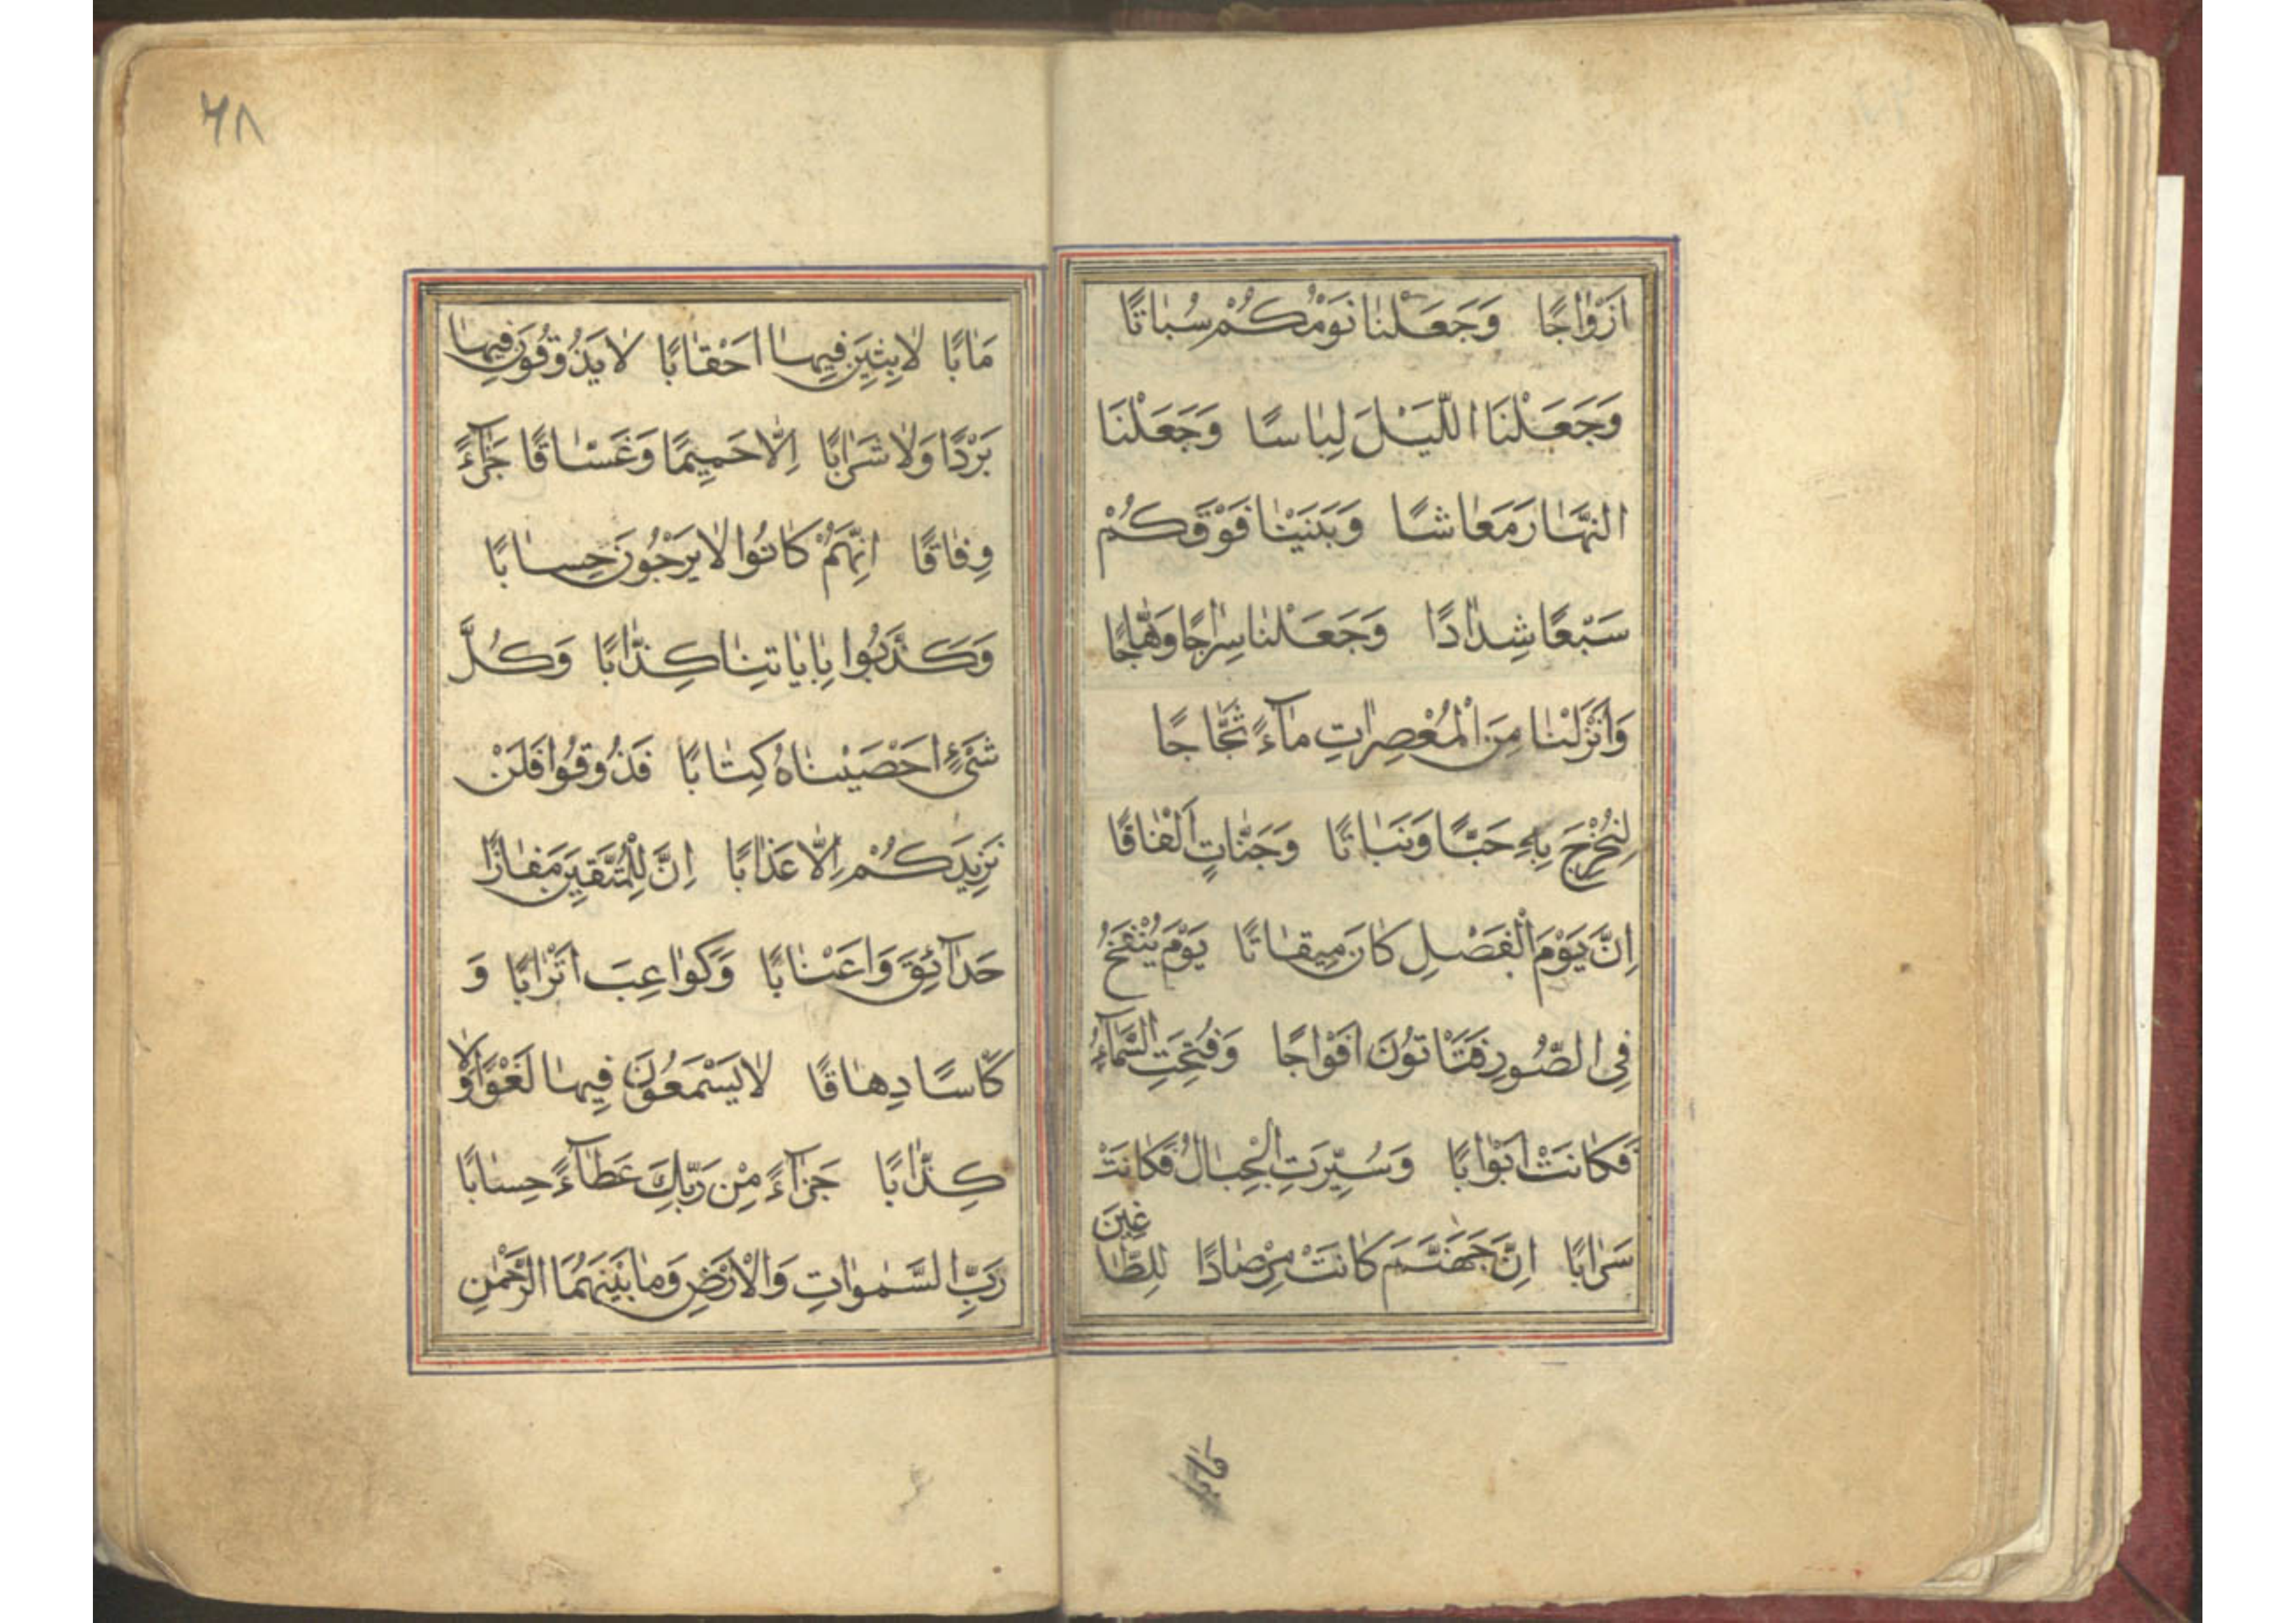 اَزْوٰاجًا وَجَعَلْنٰا نَوْمَكُمْ سُبٰاتًا
وَجَعَلْنَا اللَّيْلَ لِبٰاسًا وَجَعَلْنَا
النَّهٰارَ مَعٰاشًا وَبَنَيْنٰا فَوْقَكُمْ
سَبْعًا شِدٰادًا وَجَعَلْنٰا سِرٰاجًا وَهّٰاجًا
وَاَنْزَلْنٰا مِنَ الْمُعْصِرٰاتِ مٰآءً ثَجّٰاجًا
لِنُخْرِجَ بِهِ حَبًّا وَنَبٰاتًا وَجَنّٰاتٍ اَلْفٰافًا
اِنَّ يَوْمَ الْفَصْلِ كٰانَ مِيقٰاتًا يَوْمَ يُنْفَخُ
فِى الصُّورِ فَتَاْتُونَ اَفْوٰاجًا وَفُتِحَتِ السَّمٰآءُ
فَكٰانَتْ اَبْوٰابًا وَسُيِّرَتِ الْجِبٰالُ فَكٰانَتْ
سَرٰابًا اِنَّ جَهَنَّمَ كٰانَتْ مِرْصٰادًا لِلطّٰاغِينَ
٦٨
مَاٰبًا لٰابِثِينَ فِيهٰا اَحْقٰابًا لٰا يَذُوقُونَ فِيهٰا
بَرْدًا وَلٰا شَرٰابًا اِلّٰا حَمِيمًا وَغَسّٰاقًا جَزٰآءً
وِفٰاقًا اِنَّهُمْ كٰانُوا لٰا يَرْجُونَ حِسٰابًا
وَكَذَّبُوا بِاٰيٰاتِنٰا كِذّٰابًا وَكُلَّ
شَىْءٍ اَحْصَيْنٰاهُ كِتٰابًا فَذُوقُوا فَلَنْ
نَزِيدَكُمْ اِلّٰا عَذٰابًا اِنَّ لِلْمُتَّقِينَ مَفٰازًا
حَدٰآئِقَ وَاَعْنٰابًا وَكَوٰاعِبَ اَتْرٰابًا وَ
كَاْسًا دِهٰاقًا لٰا يَسْمَعُونَ فِيهٰا لَغْوًا وَلٰا
كِذّٰابًا جَزٰآءً مِنْ رَبِّكَ عَطٰآءً حِسٰابًا
رَبِّ السَّمٰوٰاتِ وَالْاَرْضِ وَمٰا بَيْنَهُمَا الرَّحْمٰنِ